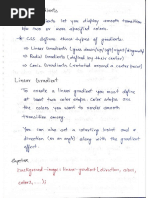 Gradients
gradients let you display smooth transition
two or more specified colors.
CSS defines three types of gradients:
Linear Gradients (goes down/up/left/right/diagonally)
Radial Gradients (defined by their center)
Conic Gradients (rotated around a center point)
Linear Gradient
To create a linear gradient you must define
at least two color stops. Color stops are
the colors you want to render smooth
transitions among.
You can also set a starting point and a
direction (or an angle) along with the
gradient effect.
background-image: linear-gradient(direction, color1,
color2, ...);